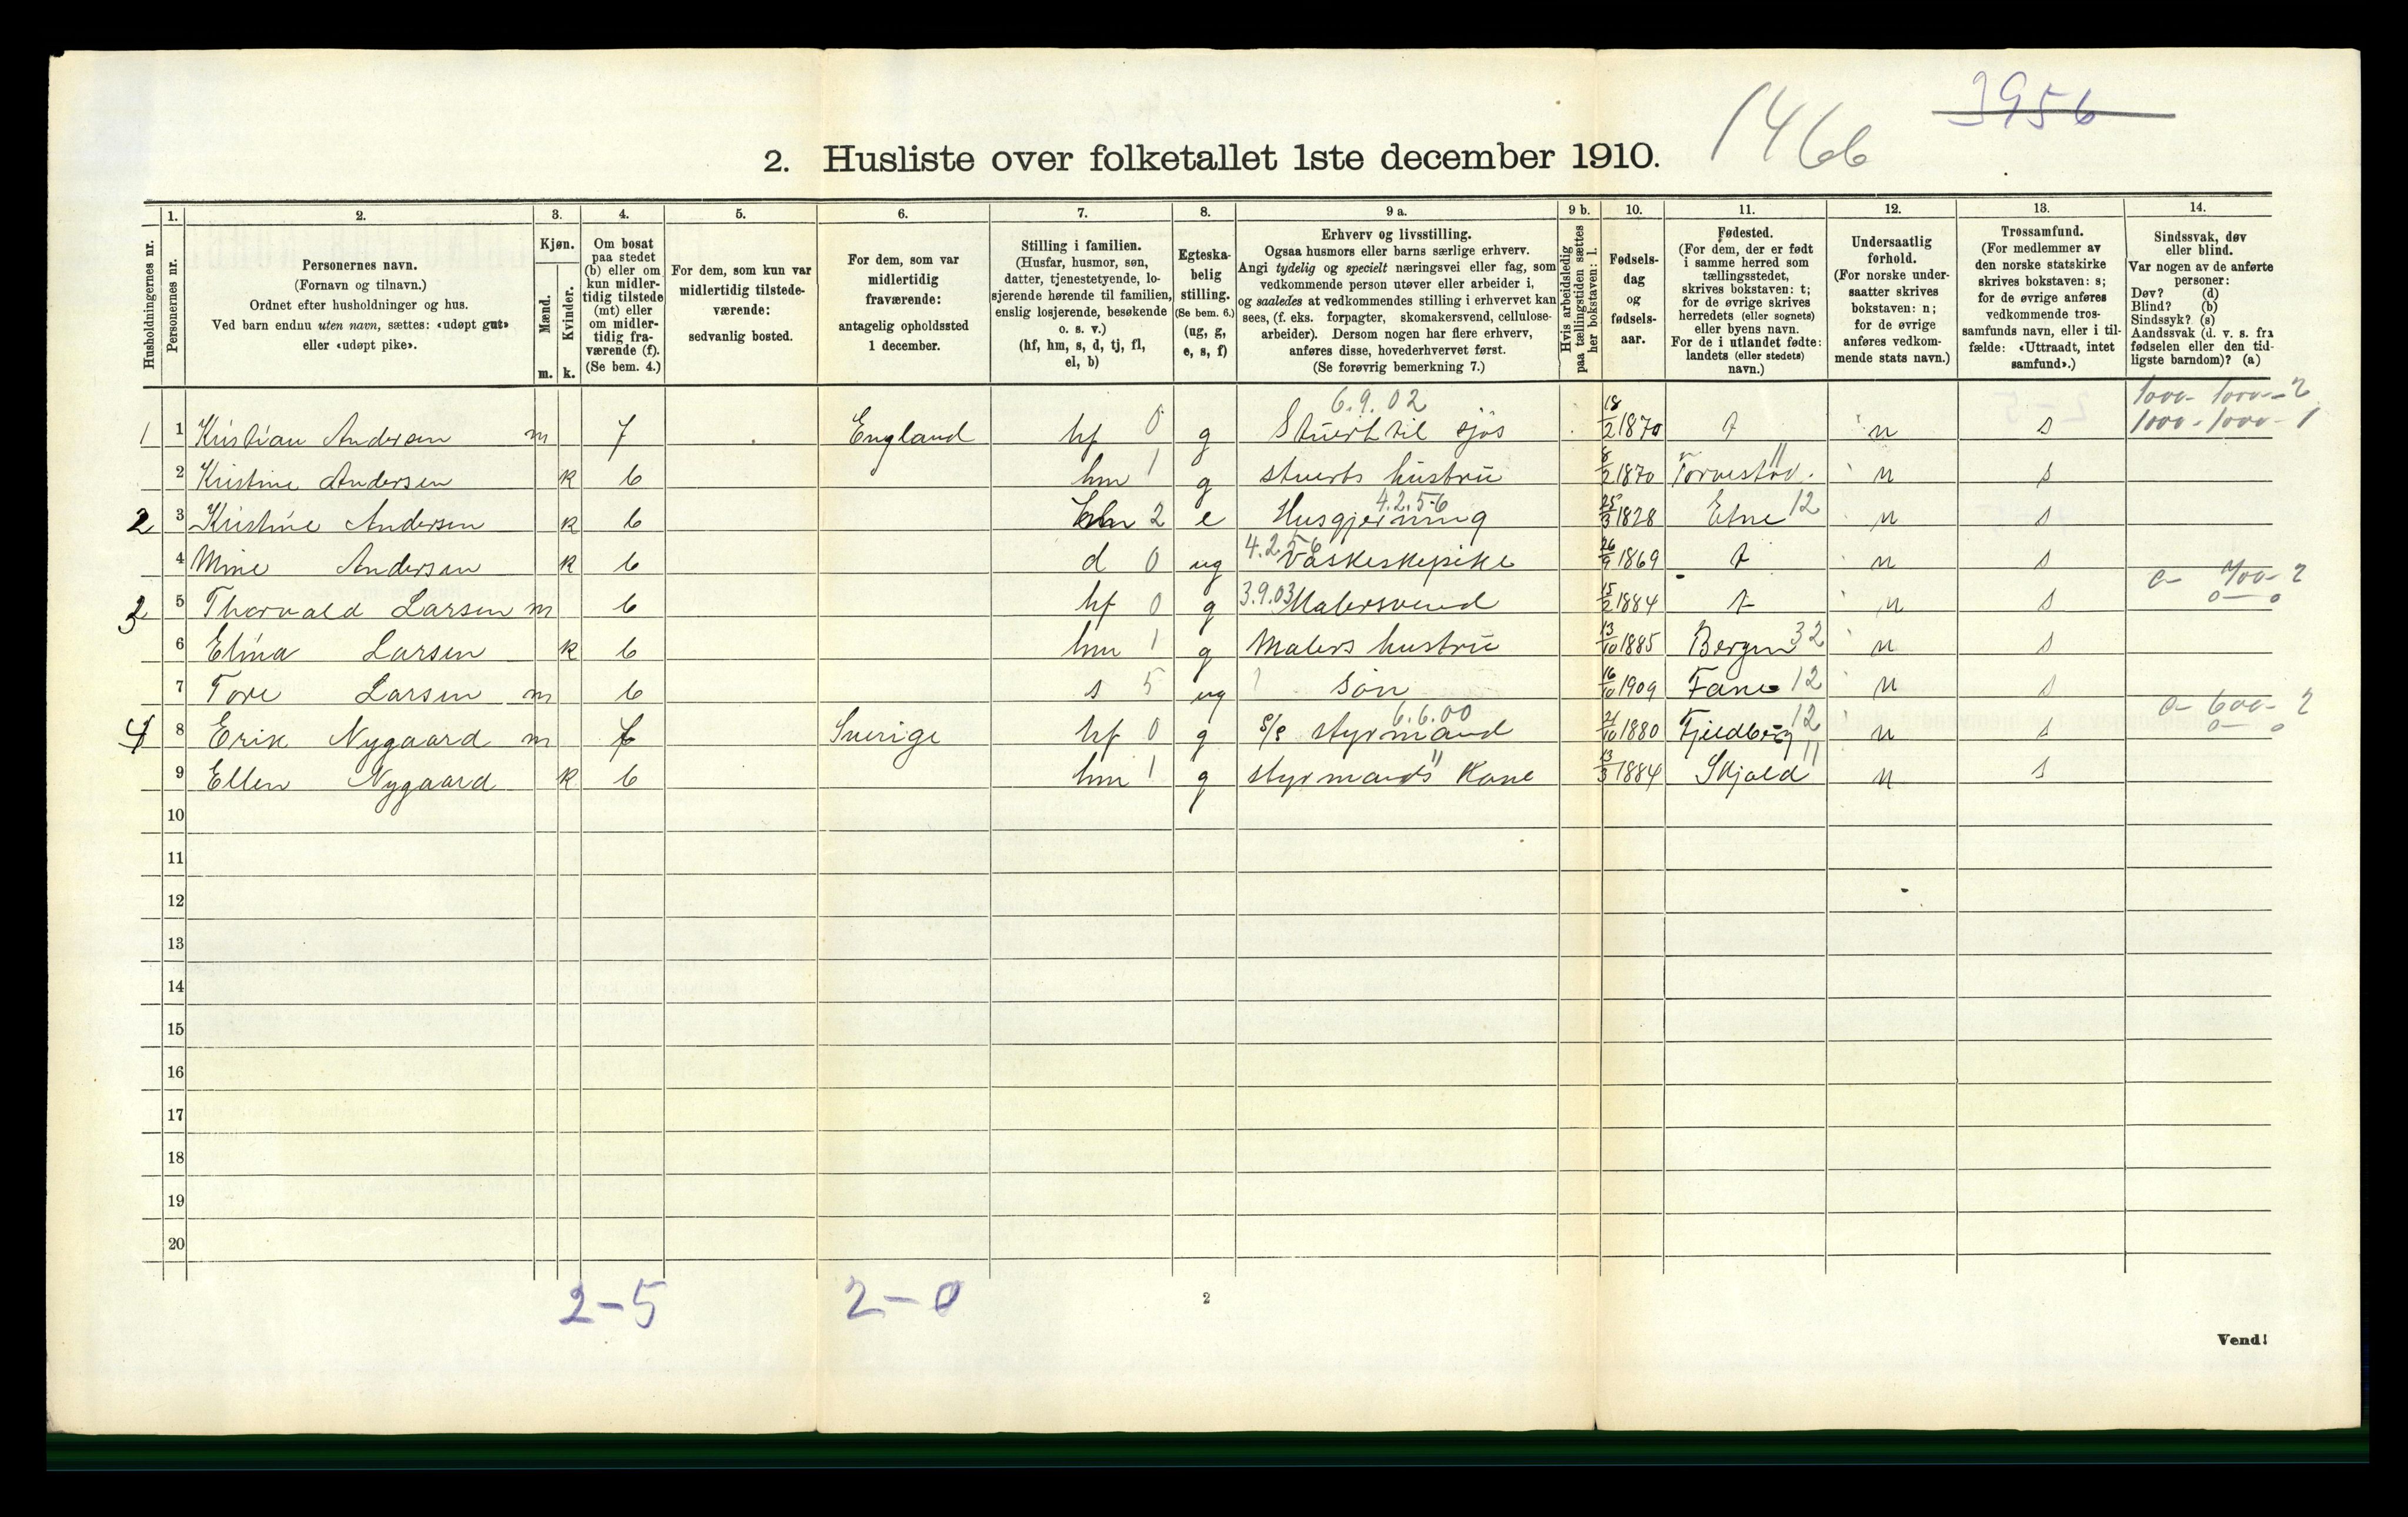 3956
1466
2. Husliste over folketallet 1ste december 1910.
Husholdningernes nr.
1.
Personernes nr.
2.
Personernes navn.
(Fornavn og tilnavn.)
Ordnet efter husholdninger og hus.
Ved barn endnu uten navn, sættes: «udøpt gut»
eller «udøpt pike».
3.
Kjøn.
Mænd.
Kvinder.
m. k.
4.
Om bosat
paa stedet
(b) eller om
kun midler-
tidig tilstede
(mt) eller
om midler-
tidig fra-
værende (f).
(Se bem. 4.)
5.
For dem, som kun var
midlertidig tilstede-
værende:
sedvanlig bosted.
6.
For dem, som var
midlertidig
fraværende:
antagelig opholdssted
1 december.
7.
Stilling i familien.
(Husfar, husmor, søn,
datter, tjenestetyende, lo-
sjerende hørende til familien,
enslig losjerende, besøkende
o. s. v.)
(hf, hm, s, d, tj, fl,
el, b)
8.
Egteska-
belig
stilling.
(Se bem. 6.)
(ug, g,
e, s, f)
9 a.
Erhverv og livsstilling.
Ogsaa husmors eller barns særlige erhverv.
Angi tydelig og specielt næringsvei eller fag, som
vedkommende person utøver eller arbeider i,
og saaledes at vedkommendes stilling i erhvervet kan
sees, (f. eks. forpagter, skomakersvend, cellulose-
arbeider). Dersom nogen har flere erhverv,
anføres disse, hovederhvervet først.
(Se forøvrig bemerkning 7.)
9 b.
Hvis arbeidsledig
paa tællingstiden sættes
her bokstaven: l.
10.
Fødsels-
dag
og
fødsels-
aar.
11.
Fødested.
(For dem, der er født
i samme herred som
tællingsstedet,
skrives bokstaven: t;
for de øvrige skrives
herredets (eller sognets)
eller byens navn.
For de i utlandet fødte:
landets (eller stedets)
navn.)
12.
Undersaatlig
forhold.
(For norske under-
saatter skrives
bokstaven: n;
for de øvrige
anføres vedkom-
mende stats navn.)
13.
Trossamfund.
(For medlemmer av
den norske statskirke
skrives bokstaven: s;
for de øvrige anføres
vedkommende tros-
samfunds navn, eller i til-
fælde: «Uttraadt, intet
samfund».)
14.
Sindssvak, døv
eller blind.
Var nogen av de anførte
personer:
Døv? (d)
Blind? (b)
Sindssyk? (s)
Aandssvak (d. v. s. fra
fødselen eller den tid-
ligste barndom)? (a)
6.9.02 1000 - 1000 - 2
1 1 Kristian Andersen m f England hf 0 g Stuert til sjøs 18/2 1870 t n s 1000 - 1000 - 1
2 Kristine Andersen k b hm 1 g stuerts hustru 8/2 1870 Torvestad. 11 n s
2 3 Kristine Andersen k b hm 2 e Husgjerning 4.2.5-6 25/3 1828 Etne 12 n s
4 Mine Andersen k b d 0 ug 4.2.5 6 Vaskeskepike 26/9 1869 t n s
0 - 700 - 2
3 5 Thorvald Larsen m b hf 0 g 3.9.03 Malersvend 15/2 1884 t n s 0 - 0
6 Elina Larsen k b hm 1 g Malers hustru 13/10 1885 Bergen 32 n s
7 Tore Larsen m b s 5 ug søn 16/10 1909 Fane 12 n s
0 - 600 - 2
4 8 Erik Nygaard m f Sverige hf 0 g S/S styrmand 6.6.00 21/10 1880 Fjeldberg 12 n s 0 - 0
9 Ellen Nygaard k b hm 1 g styrmands Kone 13/3 1884 Skjold 11 n s
10
11
12
13
14
15
16
17
18
19
20
2-5 2-0
2
Vend!